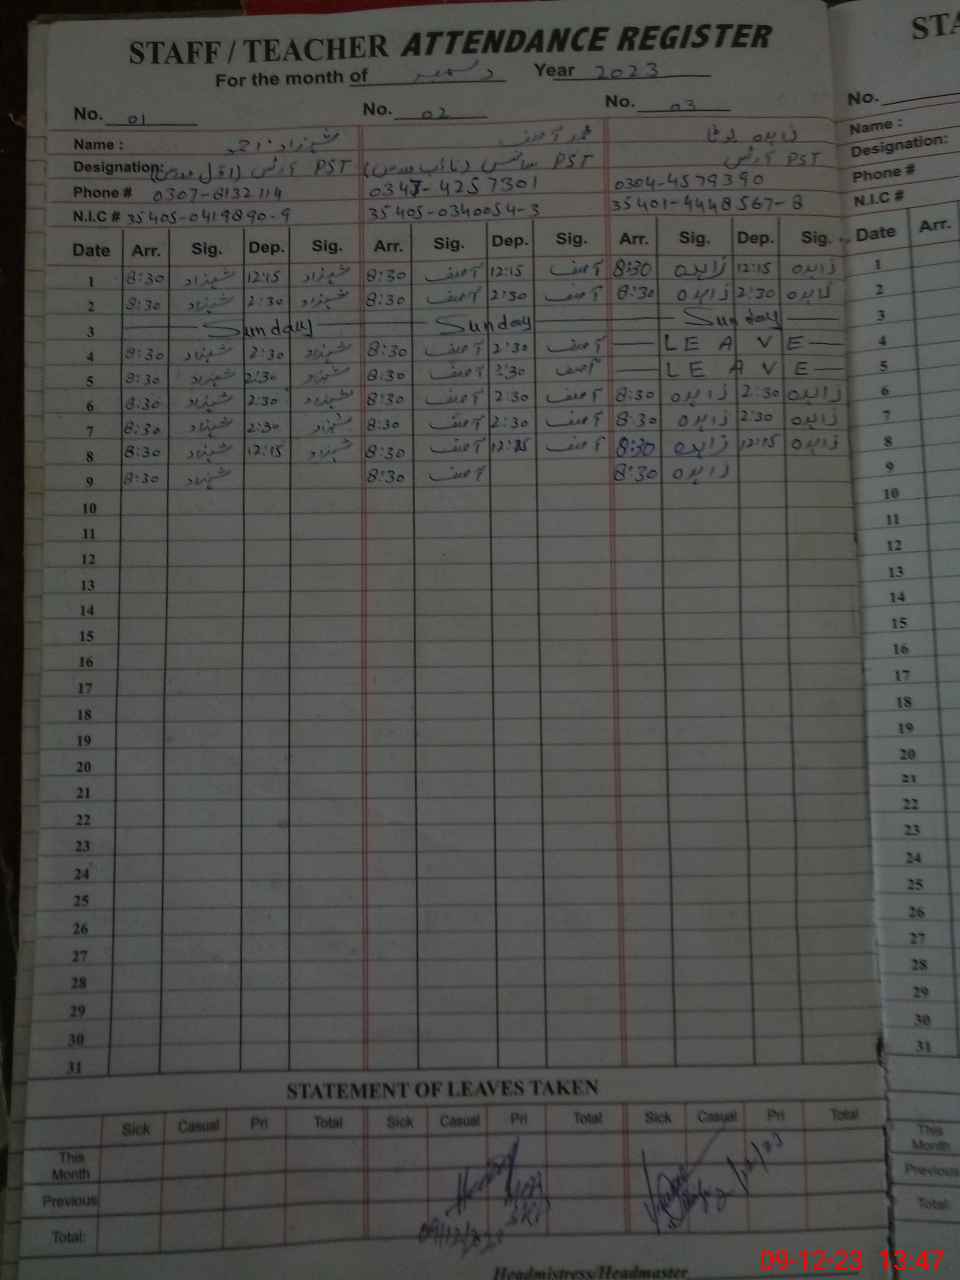 STAFF / TEACHER ATTENDANCE REGISTER
STA
For the month of دسمبر Year 2023
No. 01 No. 02 No. 03 No.
Name : شہزاد احمد محمد آصف زاہدہ Name :
Designation: PST آرٹس (اوّل مدرس) PST سائنس (نائب مدرس) PST آرٹس Designation:
Phone # 0307-8132114 0347-4257301 0304-4579390 Phone #
N.I.C # 35405-0419890-9 35405-0340054-3 35401-4448567-8 N.I.C #
Date Arr. Sig. Dep. Sig. Arr. Sig. Dep. Sig. Arr. Sig. Dep. Sig. Date Arr.
1 8:30 شہزاد 12:15 شہزاد 8:30 آصف 12:15 آصف 8:30 زاہدہ 12:15 زاہدہ 1
2 8:30 شہزاد 2:30 شہزاد 8:30 آصف 2:30 آصف 8:30 زاہدہ 2:30 زاہدہ 2
3 Sunday Sunday Sunday 3
4 8:30 شہزاد 2:30 شہزاد 8:30 آصف 2:30 آصف LEAVE 4
5 8:30 شہزاد 2:30 شہزاد 8:30 آصف 2:30 آصف LEAVE 5
6 8:30 شہزاد 2:30 شہزاد 8:30 آصف 2:30 آصف 8:30 زاہدہ 2:30 زاہدہ 6
7 8:30 شہزاد 2:30 شہزاد 8:30 آصف 2:30 آصف 8:30 زاہدہ 2:30 زاہدہ 7
8 8:30 شہزاد 12:15 شہزاد 8:30 آصف 12:15 آصف 8:30 زاہدہ 12:15 زاہدہ 8
9 8:30 شہزاد 8:30 آصف 8:30 زاہدہ 9
10 10
11 11
12 12
13 13
14 14
15 15
16 16
17 17
18 18
19 19
20 20
21 21
22 22
23 23
24 24
25 25
26 26
27 27
28 28
29 29
30 30
31 31
STATEMENT OF LEAVES TAKEN
Sick Casual Pri Total Sick Casual Pri Total Sick Casual Pri Total
This Month This Month
Previous Previous
Total: Total:
Headmistress/Headmaster
09-12-23 13:47